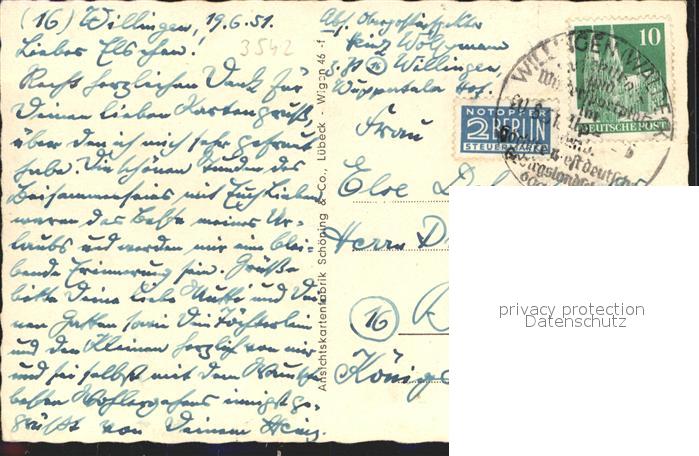 (16) Willingen, 19.6.51.
Liebes Elschen!
3542
Recht herzlichen Dank für
Deinen lieben Kartengruß,
über den ich mich sehr gefreut
habe. Die schönen Stunden des
Beisammenseins mit Euch Lieben
waren das Beste meines Ur-
laubs und werden mir eine blei-
bende Erinnerung sein. Grüße
bitte Deine liebe Mutti und Dei-
nen Gatten sowie Dein Töchterlein
und den Kleinen herzlich von mir
und sei selbst mit dem Wunsche
besten Wohlergehens innigst ge-
grüßt von Deinem Heinz.
Ansichtskartenfabrik Schöning & Co., Lübeck - Wigen 46 - f
Abs. Oberpostinspektor
Heinz
z. Zt. (16) Willingen,
Wuppertaler Hof.
Frau
Herrn
(16)
NOTOPFER
2 BERLIN
STEUERMARKE
10
DEUTSCHE POST
WILLINGEN (WALDECK)
privacy protection
Datenschutz